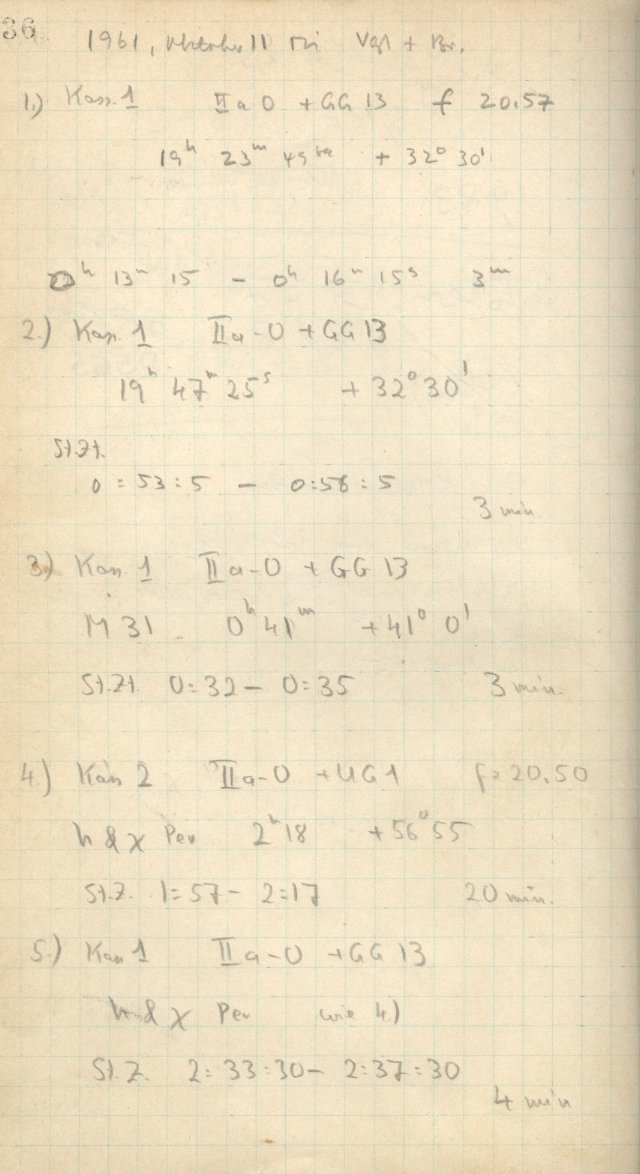 36
1961, Oktober 11 Mi Vgl + Br.
1.) Kass. 1 IIa O + GG 13 f 20.57
19h 23m 49 + 32° 30'
0h 13m 15 - 0h 16m 15s 3m
2.) Kass. 1 IIa-O + GG 13
19h 47m 25s + 32° 30'
St.Zt.
0:53:5 - 0:56:5
3 min
3) Kass. 1 IIa-O + GG 13
M 31 0h 41m + 41° 0'
St.Zt. 0:32 - 0:35 3 min.
4.) Kass 2 IIa-O + UG1 f= 20.50
h & χ Per 2h 18 + 56° 55
St.Z. 1:57 - 2:17 20 min.
5.) Kass 1 IIa-O + GG 13
h & χ Per wie 4)
St.Z. 2:33:30 - 2:37:30
4 min